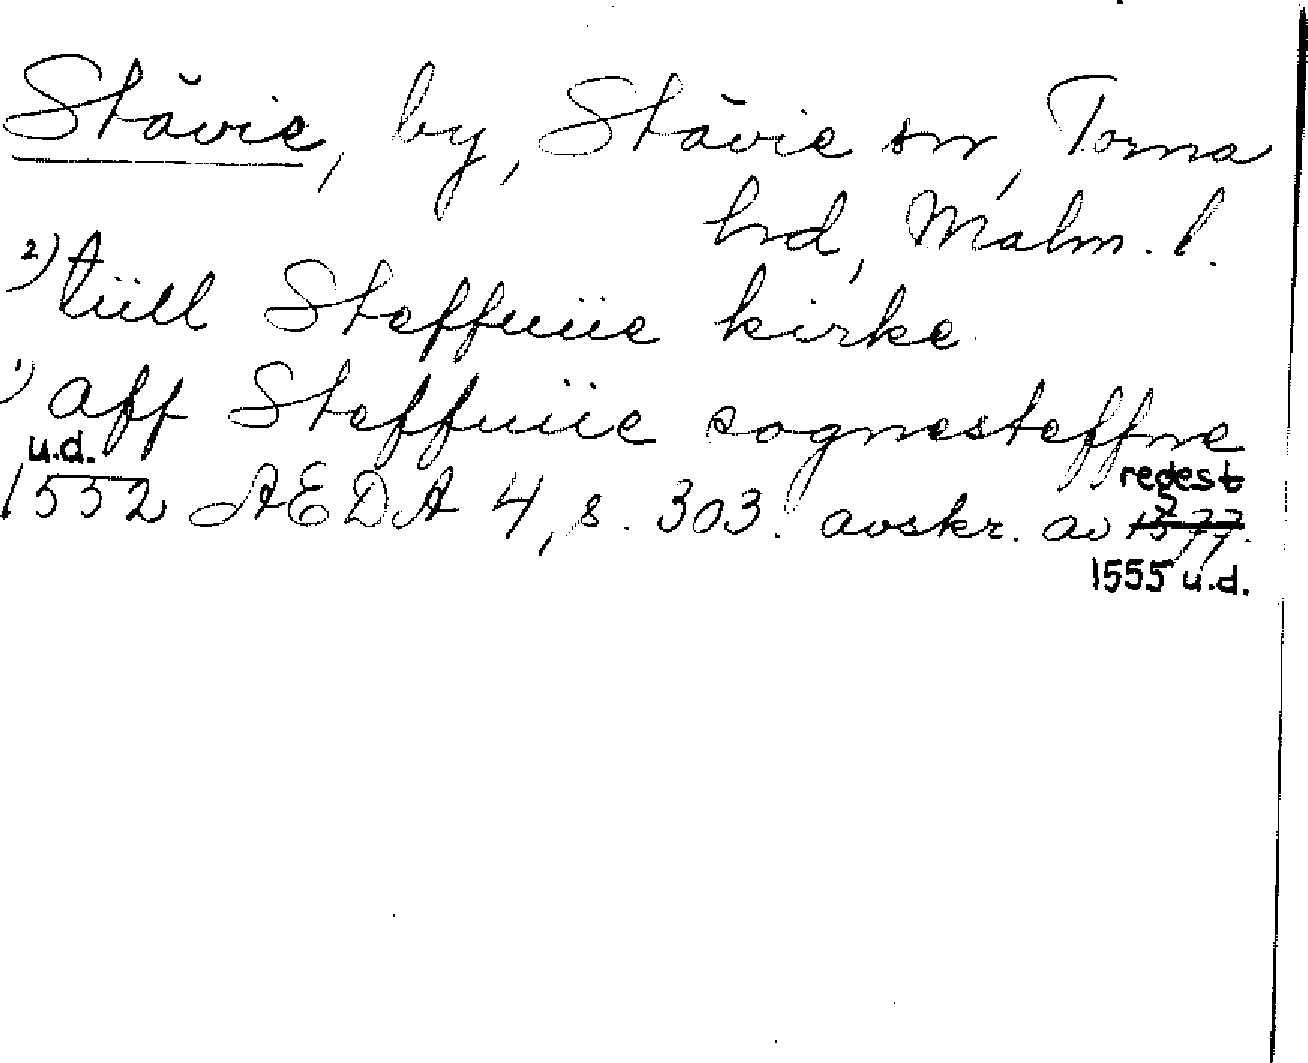 Stävie, by, Stävie sn, Torna
hrd, Malm. l.
2) tiill Steffuiie kirke.
1) aff Steffuiie sognesteffne
u.d. regest
1552 AEDA 4, s. 303. avskr. av 1577.
1555 u.d.